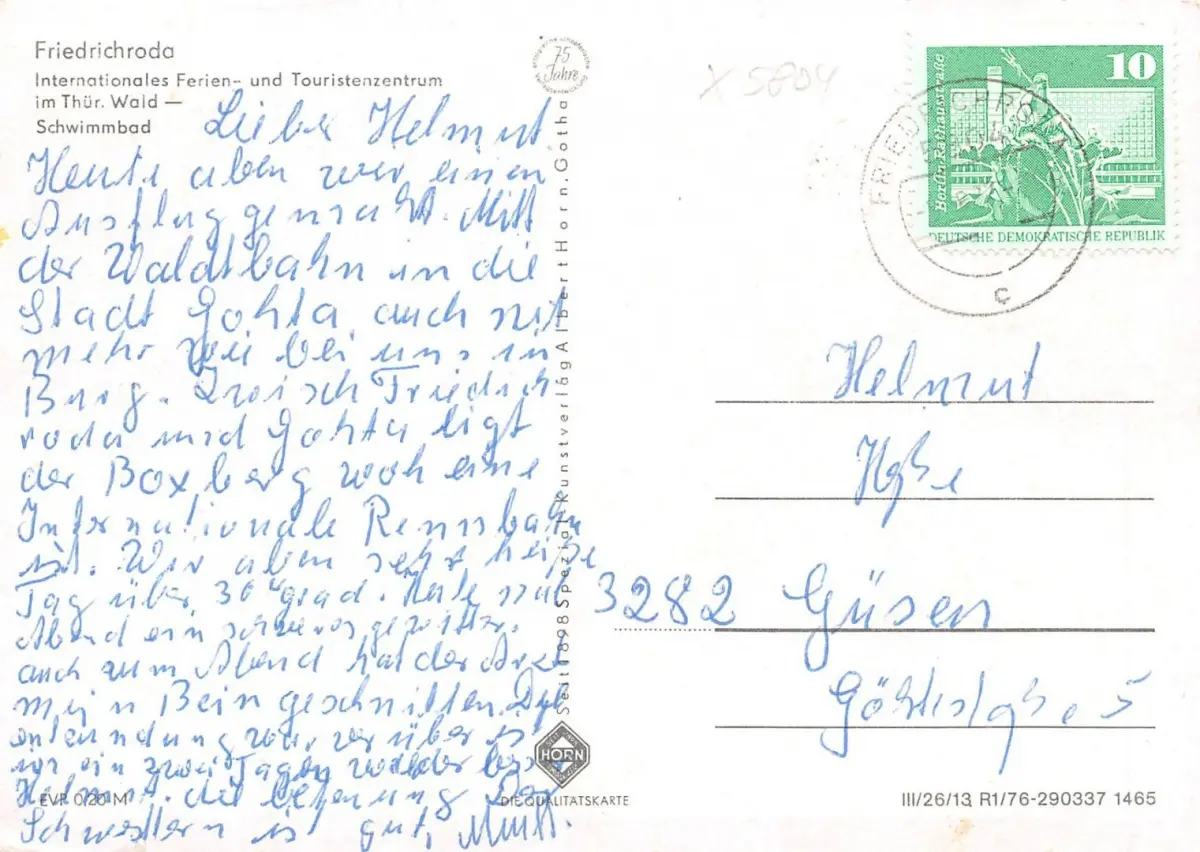 Friedrichroda
Internationales Ferien- und Touristenzentrum
im Thür. Wald —
Schwimmbad
75
Jahre
X 5804
10
Berlin, Rathausstraße
DEUTSCHE DEMOKRATISCHE REPUBLIK
FRIEDRICHRODA
c
Lieber Helmut
Heute aben wer einen
Ausflug gemacht. Mitt
der Waldtbahn in die
Stadt Gohta auch mit
mehr wei bei uns in
Burg. Zwisch Friedrich
roda und Gohta ligt
der Boxberg woh eine
Internationale Rennsbahn
ist. Wir aben sehr heiße
Tag über 30 grad.
Abend ein
auch zum Abend hat der Arzt
mein Bein geschnitten. Die
entzundung war vorüber ist
in ein zwei Tagen wieder
Helmut. die der
Schwestern is gut, Mutti.
Seit 1898 Spezial-Kunstverlag Albert Horn, Gotha
HORN
EVP 0,20 M
DIE QUALITÄTSKARTE
Helmut
3282 Güsen
5
III/26/13 R1/76-290337 1465